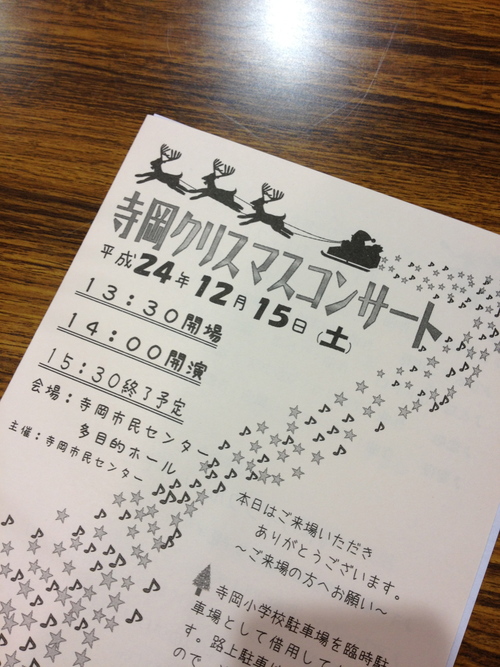 寺岡クリスマスコンサート
平成24年12月15日(土)
13:30開場
14:00開演
15:30終了予定
会場:寺岡市民センター
多目的ホール
主催:寺岡市民センター
本日はご来場いただき
ありがとうございます。
~ご来場の方へお願い~
寺岡小学校駐車場を臨時駐
車場として借用して
す。路上駐車
ので